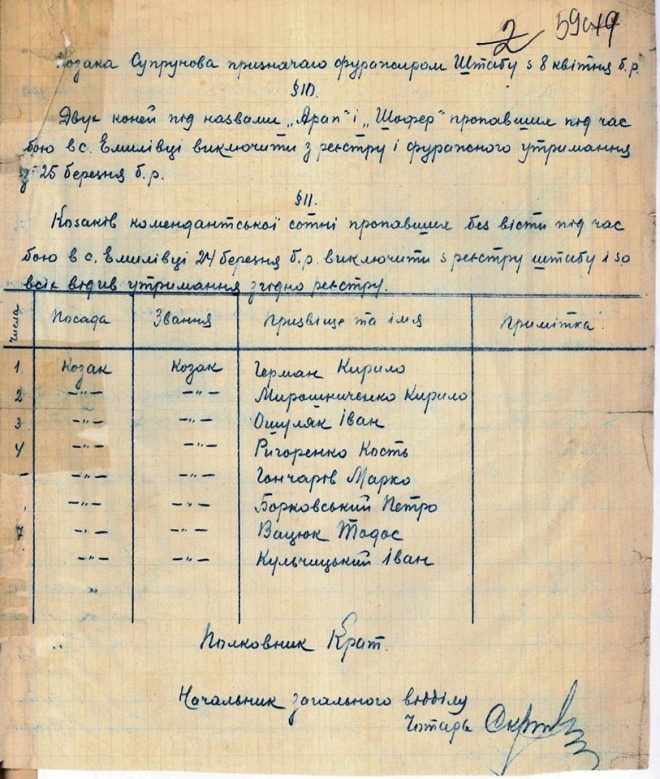 2 59
Козака Супрунова призначаю фуражиром Штабу з 8 квітня б.р.
§10.
Двух коней під назвами „Арап" і „Шофер" пропавших під час
бою в с. Емилівці виключити з реєстру і фуражного утримання
зі 25 березня б.р.
§11.
Козаків комендантської сотні пропавших без вісти під час
бою в с. Емилівці 24 березня б.р. виключити з реєстру штабу і зо
всіх видів утримання згідно реєстру.
числа Посада Звання Призвіще та імя Примітка
1 Козак Козак Герман Кирило
2 -"- -"- Мирошниченко Кирило
3 -"- -"- Ошуляк Іван
4 -"- -"- Ригоренко Кость
-"- -"- Гончарів Марко
-"- -"- Борковський Петро
7 -"- -"- Вацюк Тодос
-"- -"- Кульчицький Іван
Полковник Крат.
Начальник загального відділу
Чотарь